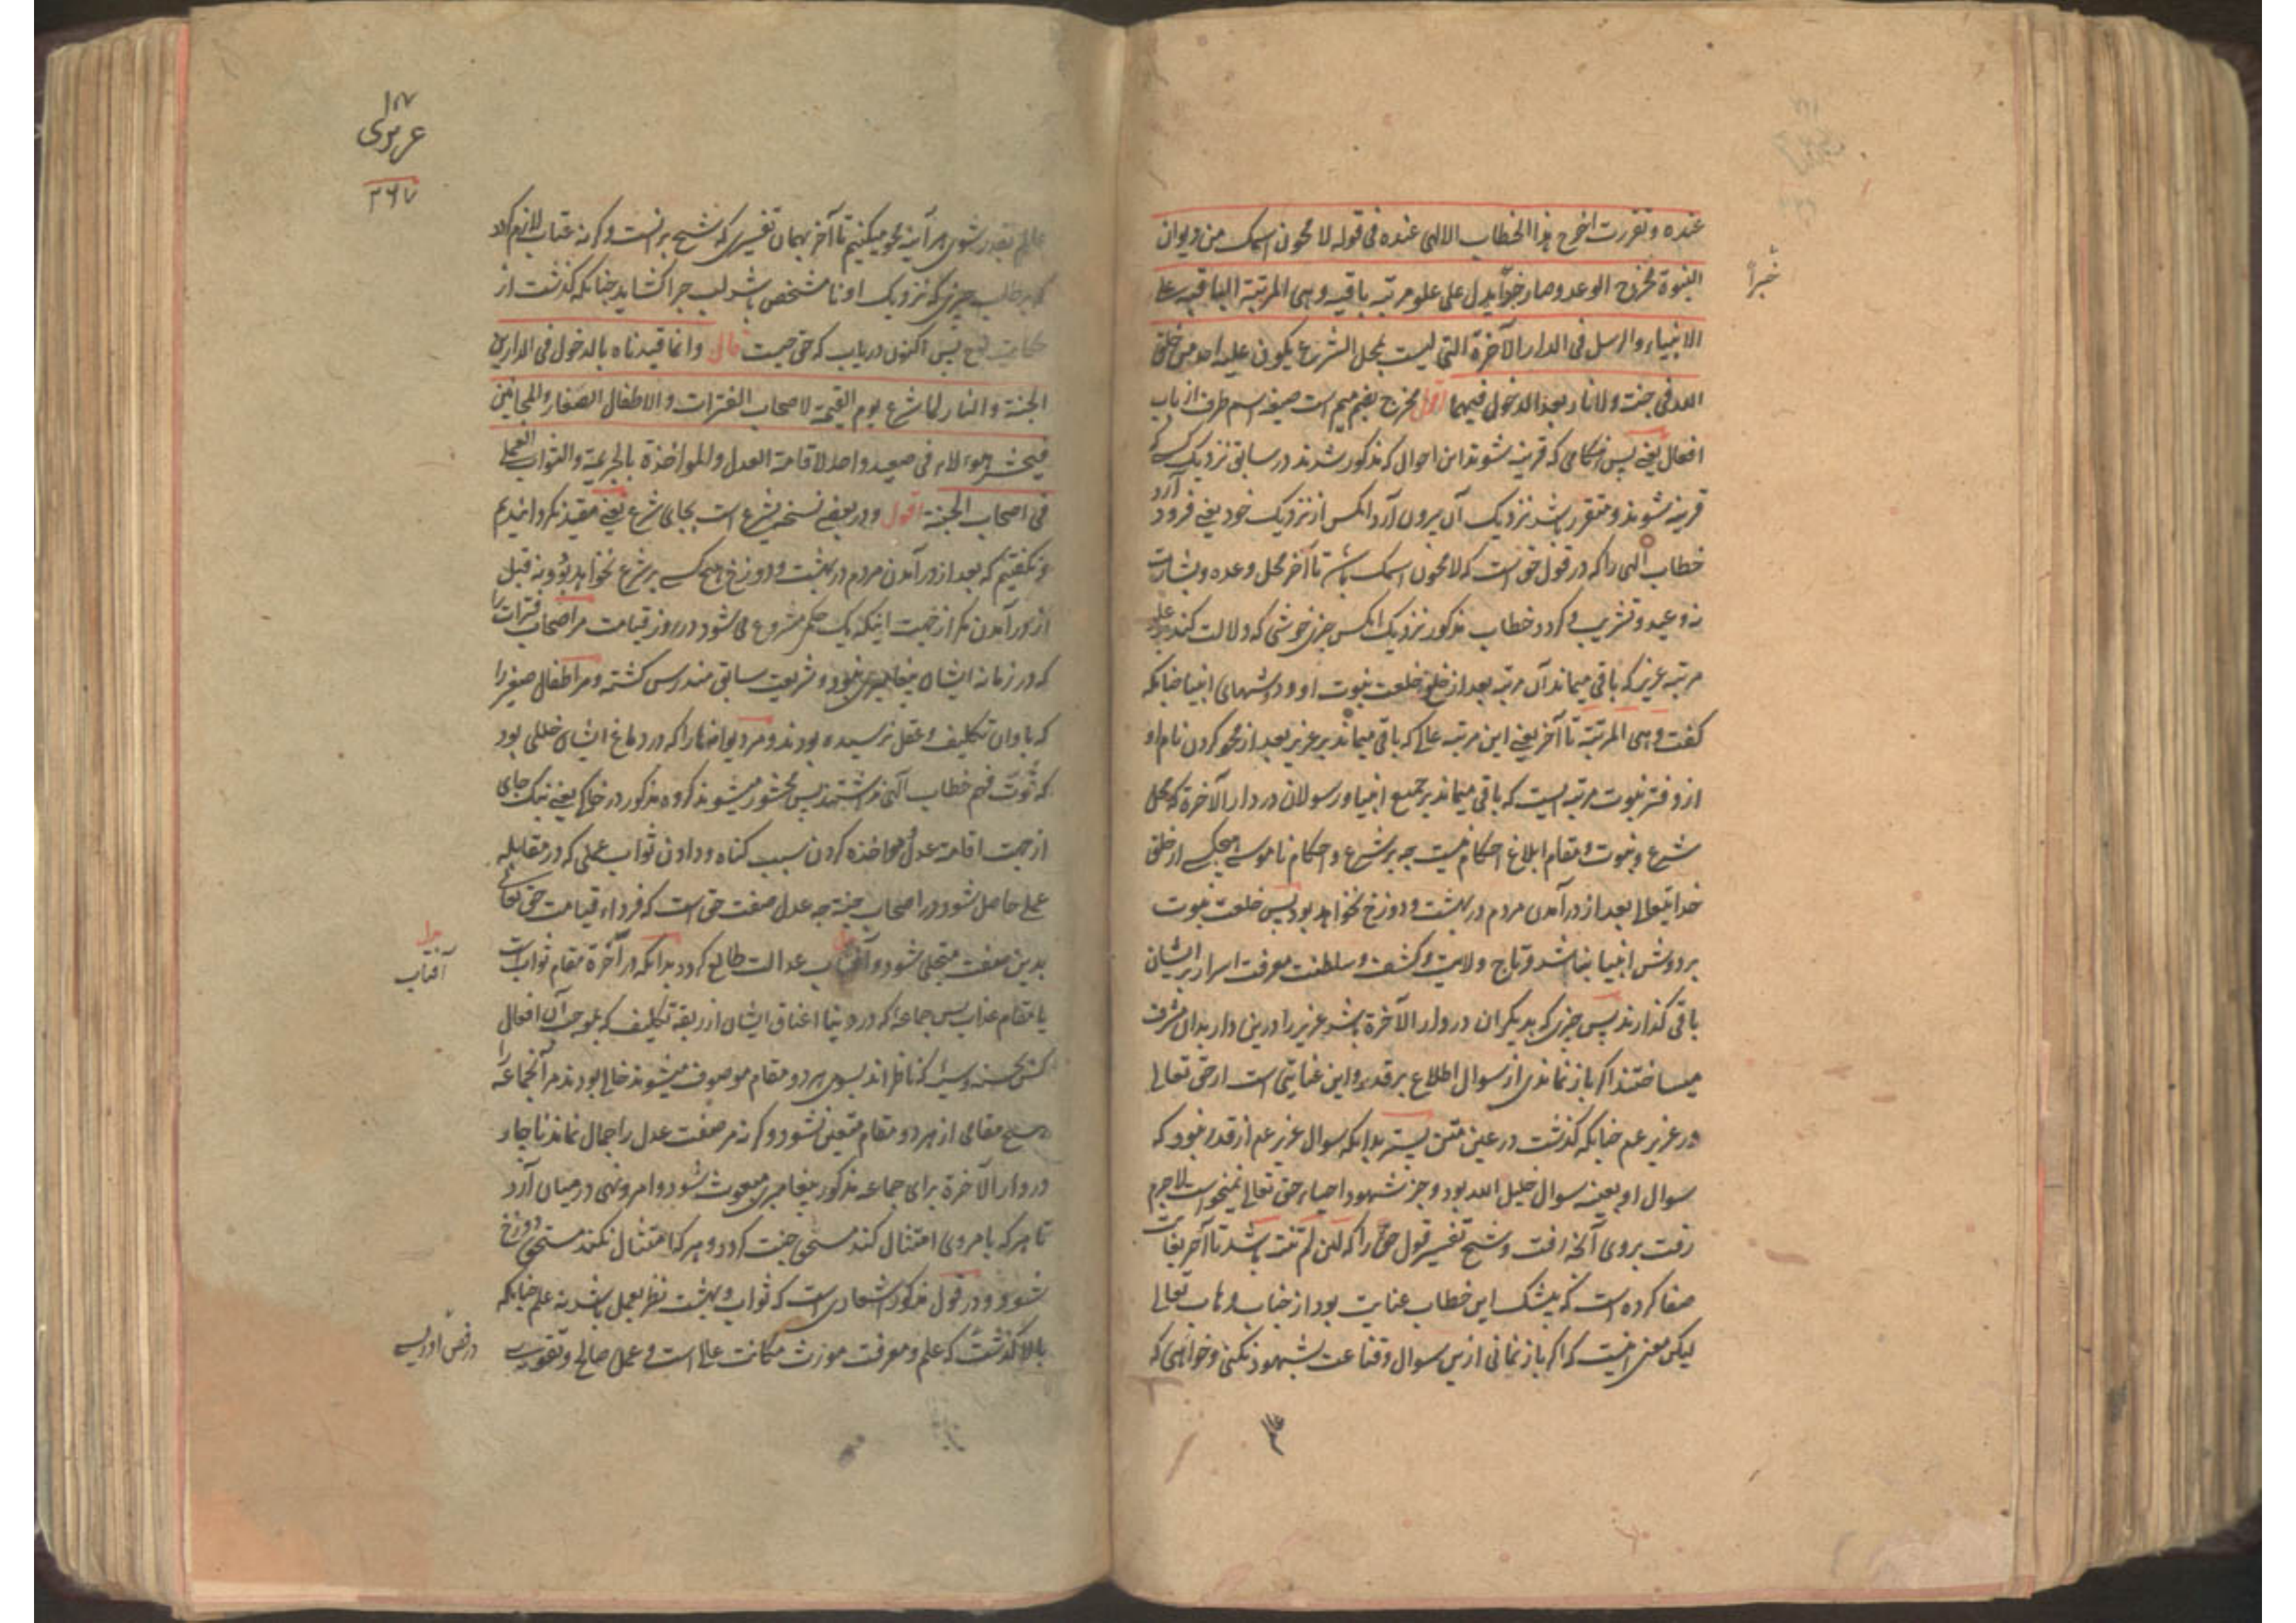 عنده و تقررت اخرج هذا الخطاب الالهی عنده فی قوله لا محون اسمک من دیوان
النبوة مخرج الوعد و صار خبرا یدل علی علو مرتبه باقیه و هی المرتبة الباقیه علی
خبراً
الانبیاء و الرسل فی الدار الآخرة التی لیست بمحل الشرع یکون علیه احد من خلق
الله فی جنت و لا نار بعد الدخول فیهما اقول مخرج بضم میم است صیغه اسم ظرف از باب
افعال یعنی پس هنگامی که قرینه شوند این احوال که مذکور شدند در سابق نزدیک کسی که
قرینه شوند و متقرر باشد نزدیک آن بیرون آرد آنکس از نزدیک خود یعنی فرود آرد
خطاب الهی را که در قول حق است که لا محون اسمک باشد تا آخر محل وعده و بشارت
نه وعید و تشریب و کردد خطاب مذکور نزدیک آنکس چیزی خوشی که دلالت کند بر علو
مرتبه عزیر که باقی میماند آن مرتبه بعد از خلع خلعت نبوت او و دوشهای انبیا چنانکه
کفت و هی المرتبة تا آخر یعنی این مرتبه عالی که باقی میماند بر عزیر بعد از محو کردن نام او
از دفتر نبوت مرتبه ایست که باقی میماند بر جمیع انبیا و رسولان در دار الآخرة که محل
شرع و نبوت و مقام ابلاغ احکام نیست چه بر شرع و احکام ناموسی هیچکسی از خلق
خدایتعالی بعد از درآمدن مردم در بهشت و دوزخ نخواهد بود پس خلعت نبوت
بر دوش انبیا نباشد و تاج ولایت و کشف و سلطنت معرفت اسرار بر ایشان
باقی کذارند پس چیزی که بدیکران در دار الآخرة باشد عزیر را درین دار بدان مشرف
میساختند اکر باز نماندی از سوال اطلاع بر قدر و این عنایتی است از حق تعالی
در عزیر عم چنانکه کذشت در عین متن بسته بدانکه سوال عزیر عم از قدر نبود که
سوال او بعینه سوال خلیل الله بود و جز شهود احیاء حق تعالی نمیخواست لاجرم
رفت بروی آنچه رفت و شیخ تفسیر قول حق را که لئن لم تنته باشد تا آخر بغایت
صفا کرده است که بیشک این خطاب عنایت بود از جناب وهاب تعالی
لیکن معنی اینست که اکر باز نمانی ازین سوال و قناعت بشهود نکنی و خواهی که
۱۸۷
عزیری
۲۶۷
عالم بقدر شوی هر آینه محو میکنیم تا آخر بهمان تفسیری که شیخ برانست و کرنه عتاب لازم کردد
که بر طالب چیزی که نزدیک او نا مشخص باشد لب چرا کشاید چنانکه کذشت از
پس اکنون دریاب که حق چیست قال و انما قیدناه بالدخول فی الدارین
الجنة و النار لما شرع یوم القیمة لاصحاب الفترات و الاطفال الصغار و المجانین
فیحشر هؤلاء فی صعید واحد لاقامة العدل و المواخذة بالجریمة و الثواب العملی
فی اصحاب الجنة اقول و در بعضی نسخ یشرع است بجای شرع یعنی مقید نکردانیدیم
و نکفتیم که بعد از درآمدن مردم در بهشت و دوزخ هیچ کسی بر شرع نخواهد بود و نه قبل
از درآمدن مکر از جهت اینکه یک حکم مشروع می شود در روز قیامت مر اصحاب فترات را
که در زمانه ایشان پیغامبری نبود و شریعت سابق مندرس کشته و مر اطفال صغیر را
که باوان تکلیف و عقل نرسیده بودند و مر دیوانها را که در دماغ ایشان خللی بود
که قوت فهم خطاب الهی نداشتند پس محشور میشوند کروه مذکور در خاک یعنی یک جای
از جهت اقامة عدل و مواخذه کردن بسبب کناه و دادن ثواب عملی که در مقابله
عملی حاصل شود در اصحاب جنة چه عدل صفت حق است که فرداء قیامت حق تعالی
بدین صفت متجلی شود و آفتاب عدالت طالع کردد بدانکه در آخرة مقام ثواب است
آفتاب
یا مقام عذاب پس جماعه که در دنیا اعناق ایشان از ربقه تکلیف که بموجب آن افعال
حسنه و سیئه که ناظر اند بسوی هر دو مقام موصوف میشوند خالی بودند مر آنجماعه را
هیچ مقامی از هر دو مقام متعین نشود و کرنه مر صفت عدل را جمال نماند ناچار
در دار الآخرة برای جماعه مذکور پیغامبری مبعوث شود و امر و نهی در میان آرد
تا هر که بامر وی امتثال کند مستحق جنت کردد و هر که امتثال نکند مستحق دوزخ
شود و در قول مذکور اشعاری است که ثواب و بهشت نظر بعمل باشد نه علم چنانکه
بالا کذشت که علم و معرفت مورث مکانت عالی است و عمل صالح و تقوی
در فص ادریسی